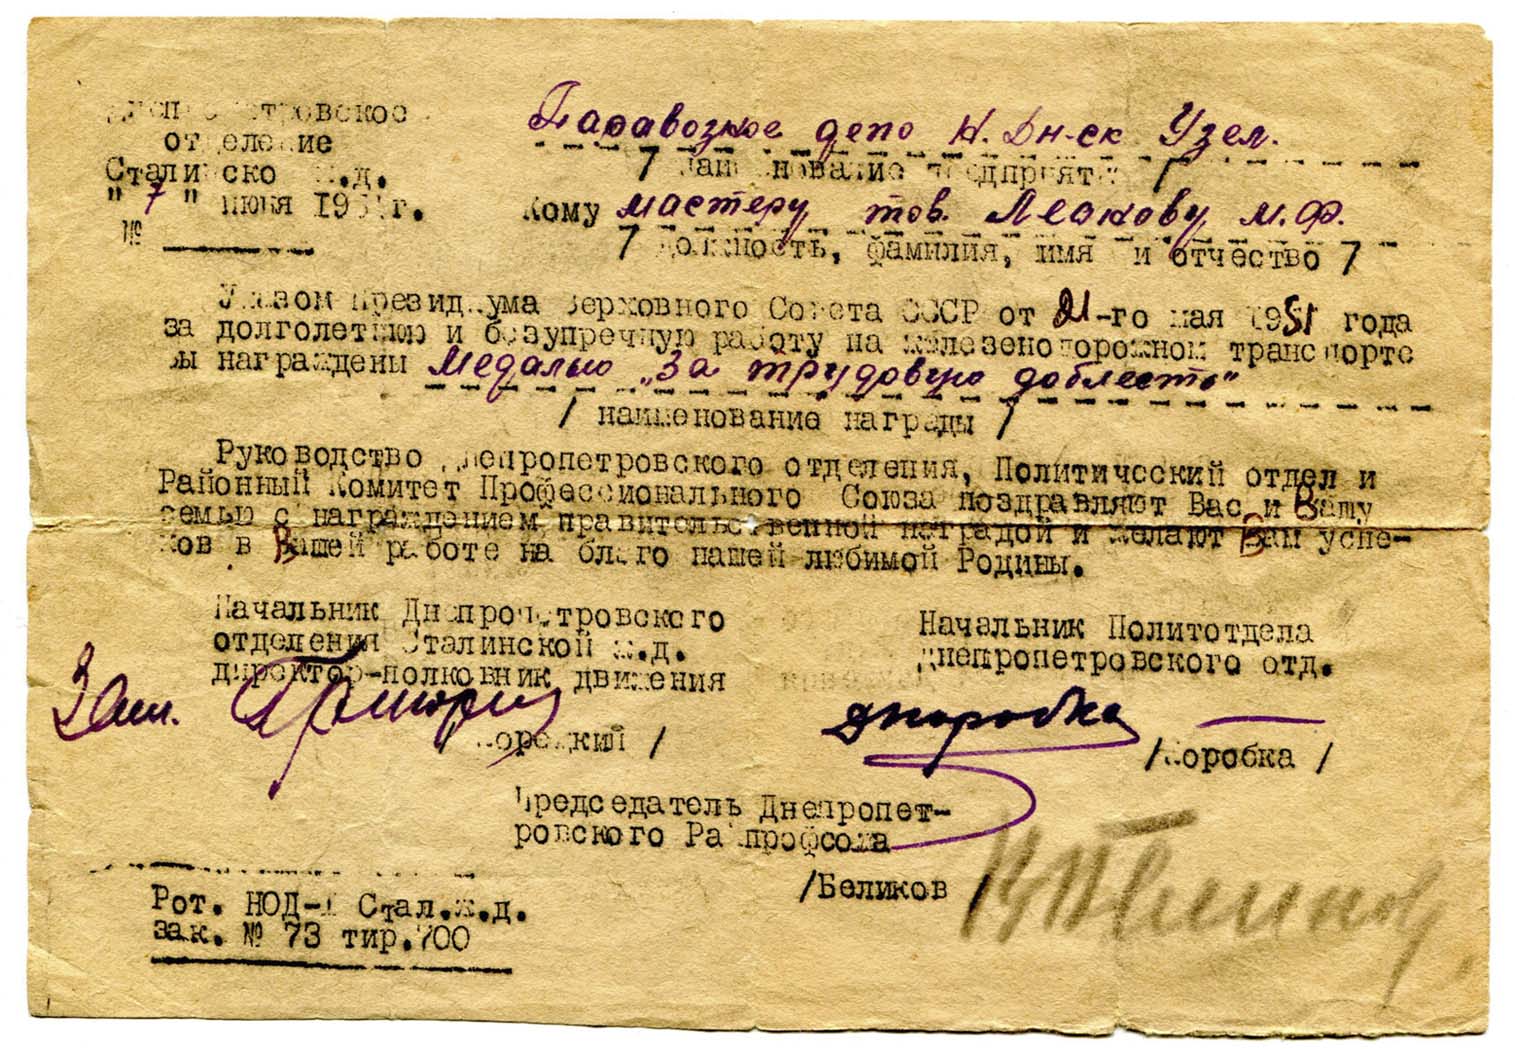 Днепропетровское
отделение
Сталинской ж.д.
"7" июня 195 г.
№
Паравозное депо Н. Дн-ск Узел.
/ наименование предприятия /
Кому мастеру тов. М.Ф.
/ должность, фамилия, имя и отчество /
Указом Президиума Верховного Совета СССР от 21-го мая 1951 года
за долголетнюю и безупречную работу на железнодорожном транспорте
Вы награждены медалью „За трудовую доблесть"
/ наименование награды /
Руководство Днепропетровского отделения, Политический отдел и
Районный Комитет Профессионального Союза поздравляют Вас и Вашу
семью с награждением правительственной наградой и желают Вам успе-
хов в Вашей работе на благо нашей любимой Родины.
Начальник Днепропетровского
отделения Сталинской ж.д.
директор-полковник движения
Зам.
Начальник Политотдела
Днепропетровского отд.
/Коробка /
Председатель Днепропет-
ровского Райпрофсожа
/Беликов /
Рот. НОД- Стал.ж.д.
зак. № 73 тир.700